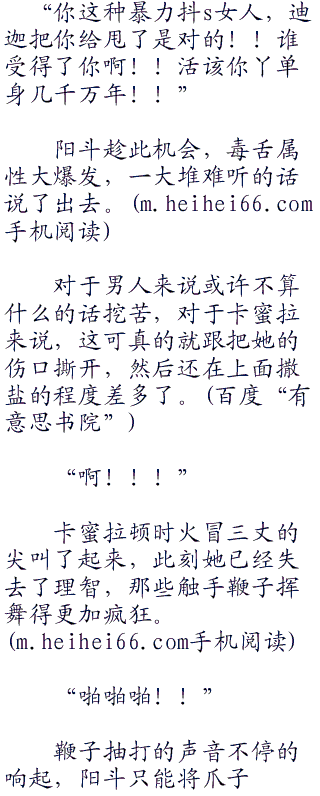 “你这种暴力抖s女人，迪
迦把你给甩了是对的！！谁
受得了你啊！！活该你丫单
身几千万年！！”
阳斗趁此机会，毒舌属
性大爆发，一大堆难听的话
说了出去。(m.heihei66.com
手机阅读)
对于男人来说或许不算
什么的话挖苦，对于卡蜜拉
来说，这可真的就跟把她的
伤口撕开，然后还在上面撒
盐的程度差多了。(百度“有
意思书院”)
“啊！！！”
卡蜜拉顿时火冒三丈的
尖叫了起来，此刻她已经失
去了理智，那些触手鞭子挥
舞得更加疯狂。
(m.heihei66.com手机阅读)
“啪啪啪！！”
鞭子抽打的声音不停的
响起，阳斗只能将爪子